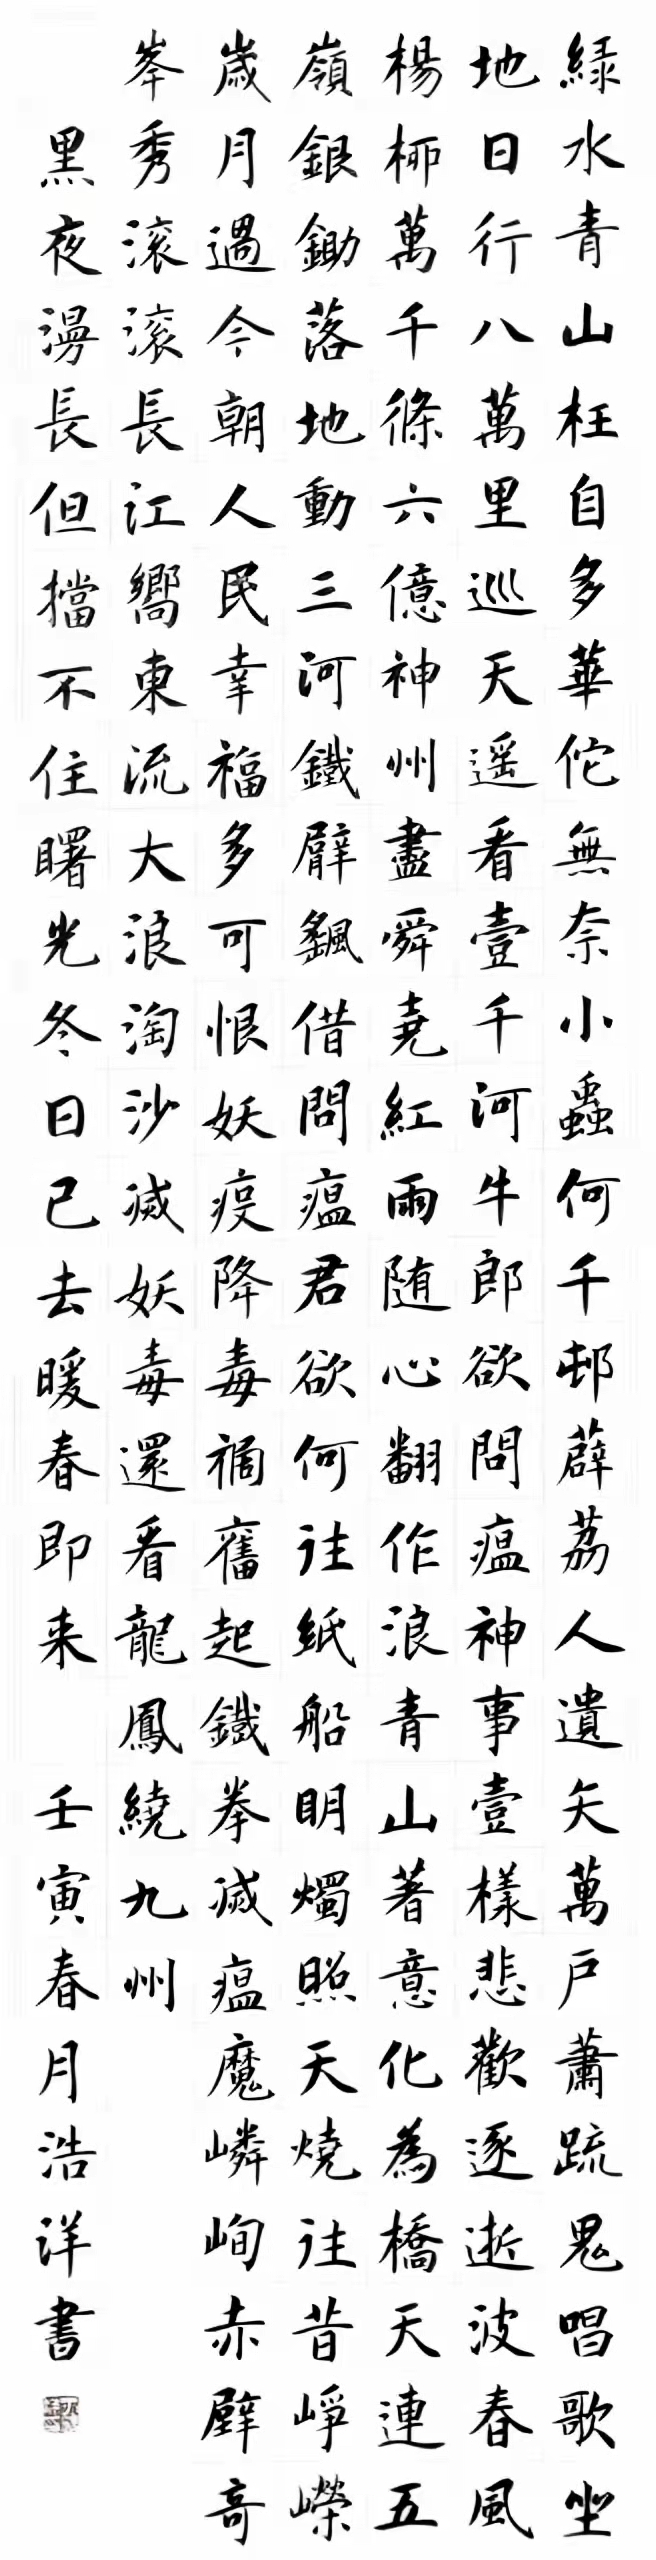 綠水青山枉自多華佗無奈小蟲何千邨薜荔人遺矢萬戶蕭疏鬼唱歌坐
地日行八萬里巡天遥看壹千河牛郎欲問瘟神事壹樣悲歡逐逝波春風
楊柳萬千條六億神州盡舜堯紅雨随心翻作浪青山著意化為橋天連五
嶺銀鋤落地動三河鐵臂颻借問瘟君欲何往紙船明燭照天燒往昔崢嶸
歲月過今朝人民幸福多可恨妖疫降毒禍奮起鐵拳滅瘟魔嶙峋赤壁奇
峯秀滚滚長江嚮東流大浪淘沙滅妖毒還看龍鳳繞九州
黑夜漫長但擋不住曙光冬日已去暖春即来 壬寅春月浩洋書